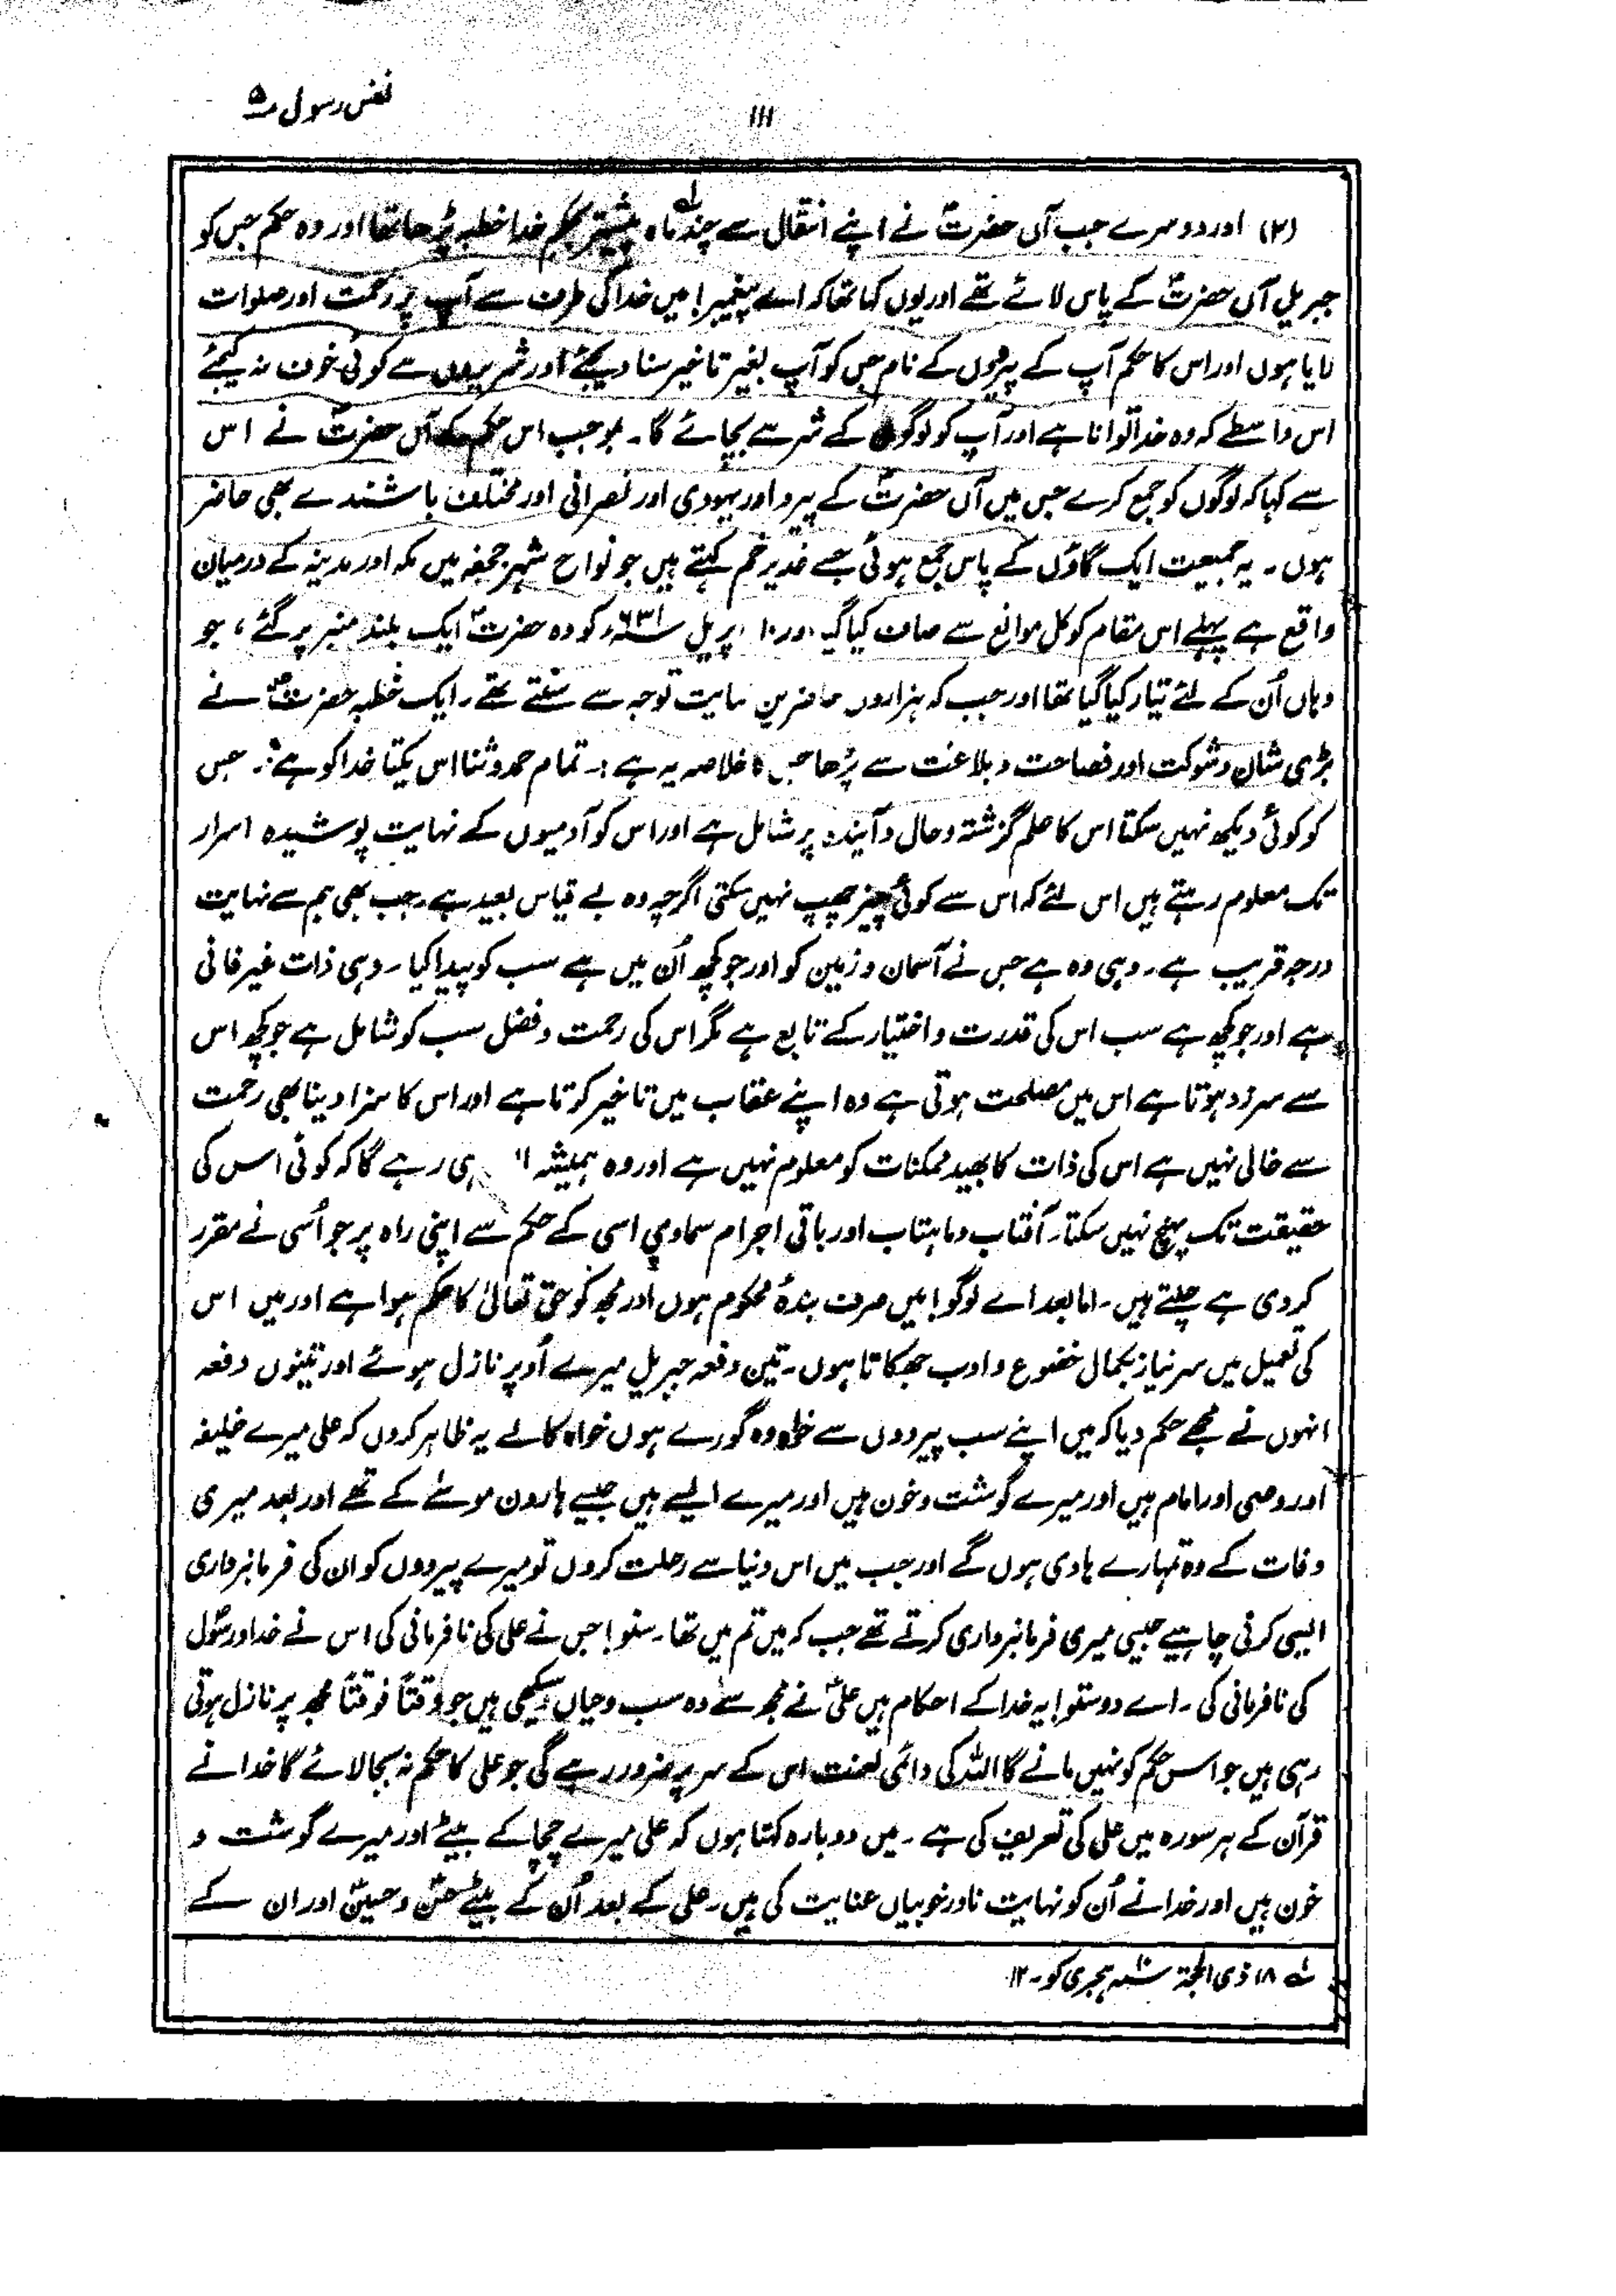 نفس رسول ۵
۱۱۱
(۲) اور دوسرے جب آں حضرتؐ نے اپنے انتقال سے چند ماہ پیشتر بحکم خدا خطبہ پڑھا تھا اور وہ حکم جس کو
جبریل آں حضرتؐ کے پاس لائے تھے اور یوں کہا تھا کہ اے پیغمبر! میں خدا کی طرف سے آپ پر رحمت اور صلوات
لایا ہوں اور اس کا حکم آپ کے پیروں کے نام جس کو آپ بغیر تاخیر سنا دیجئے اور شریروں سے کوئی خوف نہ کیجئے
اس واسطے کہ وہ خدا توانا ہے اور آپ کو لوگوں کے شر سے بچائے گا۔ بموجب اس حکم کے آں حضرتؐ نے اس
سے کہا کہ لوگوں کو جمع کرے جس میں آں حضرتؐ کے پیرو اور یہودی اور نصرانی اور مختلف باشندے بھی حاضر
ہوں۔ یہ جمیعت ایک گاؤں کے پاس جمع ہوئی جسے غدیر خم کہتے ہیں جو نواح شہر جحفہ میں مکہ اور مدینہ کے درمیان
واقع ہے پہلے اس مقام کو کل موانع سے صاف کیا گیا اور ۱۰ اپریل ۶۳۱ء کو وہ حضرتؐ ایک بلند منبر پر گئے، جو
وہاں اُن کے لئے تیار کیا گیا تھا اور جب کہ ہزاروں حاضرین نہایت توجہ سے سنتے تھے۔ ایک خطبہ حضرتؐ نے
بڑی شان و شوکت اور فصاحت و بلاغت سے پڑھا جس کا خلاصہ یہ ہے:۔ تمام حمد و ثنا اس یکتا خدا کو ہے۔ جس
کو کوئی دیکھ نہیں سکتا اس کا علم گزشتہ و حال و آیندہ پر شامل ہے اور اس کو آدمیوں کے نہایت پوشیدہ اسرار
تک معلوم رہتے ہیں اس لئے کہ اس سے کوئی چیز چھپ نہیں سکتی اگرچہ وہ بے قیاس بعید ہے۔ جب بھی ہم سے نہایت
درجہ قریب ہے۔ وہی وہ ہے جس نے آسمان و زمین کو اور جو کچھ اُن میں ہے سب کو پیدا کیا۔ وہی ذات غیر فانی
ہے اور جو کچھ ہے سب اس کی قدرت و اختیار کے تابع ہے مگر اس کی رحمت و فضل سب کو شامل ہے جو کچھ اس
سے سرزد ہوتا ہے اس میں مصلحت ہوتی ہے وہ اپنے عقاب میں تاخیر کرتا ہے اور اس کا سزا دینا بھی رحمت
سے خالی نہیں ہے اس کی ذات کا بھید ممکنات کو معلوم نہیں ہے اور وہ ہمیشہ ہی رہے گا کہ کوئی اس کی
حقیقت تک پہنچ نہیں سکتا۔ آفتاب و ماہتاب اور باقی اجرام سماوی اسی کے حکم سے اپنی راہ پر جو اُسی نے مقرر
کر دی ہے چلتے ہیں۔ اما بعد اے لوگو! میں صرف بندۂ محکوم ہوں اور مجھ کو حق تعالیٰ کا حکم ہوا ہے اور میں اس
کی تعمیل میں سر نیاز بکمال خضوع و ادب جھکاتا ہوں۔ تین دفعہ جبریل میرے اُوپر نازل ہوئے اور تینوں دفعہ
انہوں نے مجھے حکم دیا کہ میں اپنے سب پیروں سے خواہ وہ گورے ہوں خواہ کالے یہ ظاہر کروں کہ علی میرے خلیفہ
اور وصی اور امام ہیں اور میرے گوشت و خون ہیں اور میرے ایسے ہیں جیسے ہارون موسےٰ کے تھے اور بعد میری
وفات کے وہ تمہارے ہادی ہوں گے اور جب میں اس دنیا سے رحلت کروں تو میرے پیروں کو ان کی فرمانبرداری
ایسی کرنی چاہیے جیسی میری فرمانبرداری کرتے تھے جب کہ میں تم میں تھا۔ سنو! جس نے علی کی نافرمانی کی اس نے خدا و رسولؐ
کی نافرمانی کی۔ اے دوستو! یہ خدا کے احکام ہیں علیؑ نے مجھ سے وہ سب وحیاں سیکھی ہیں جو وقتاً فوقتاً مجھ پر نازل ہوتی
رہی ہیں جو اس حکم کو نہیں مانے گا اللہ کی دائمی لعنت اس کے سر پر ضرور رہے گی جو علی کا حکم نہ بجا لائے گا خدا نے
قرآن کے ہر سورہ میں علی کی تعریف کی ہے۔ میں دوبارہ کہتا ہوں کہ علی میرے چچا کے بیٹے اور میرے گوشت و
خون ہیں اور خدا نے اُن کو نہایت نادر خوبیاں عنایت کی ہیں۔ علی کے بعد اُن کے بیٹے حسنؑ و حسینؑ اور ان کے
۱ ۱۸ ذی الحجۃ ۱۰ ہجری کو۔ ۱۲